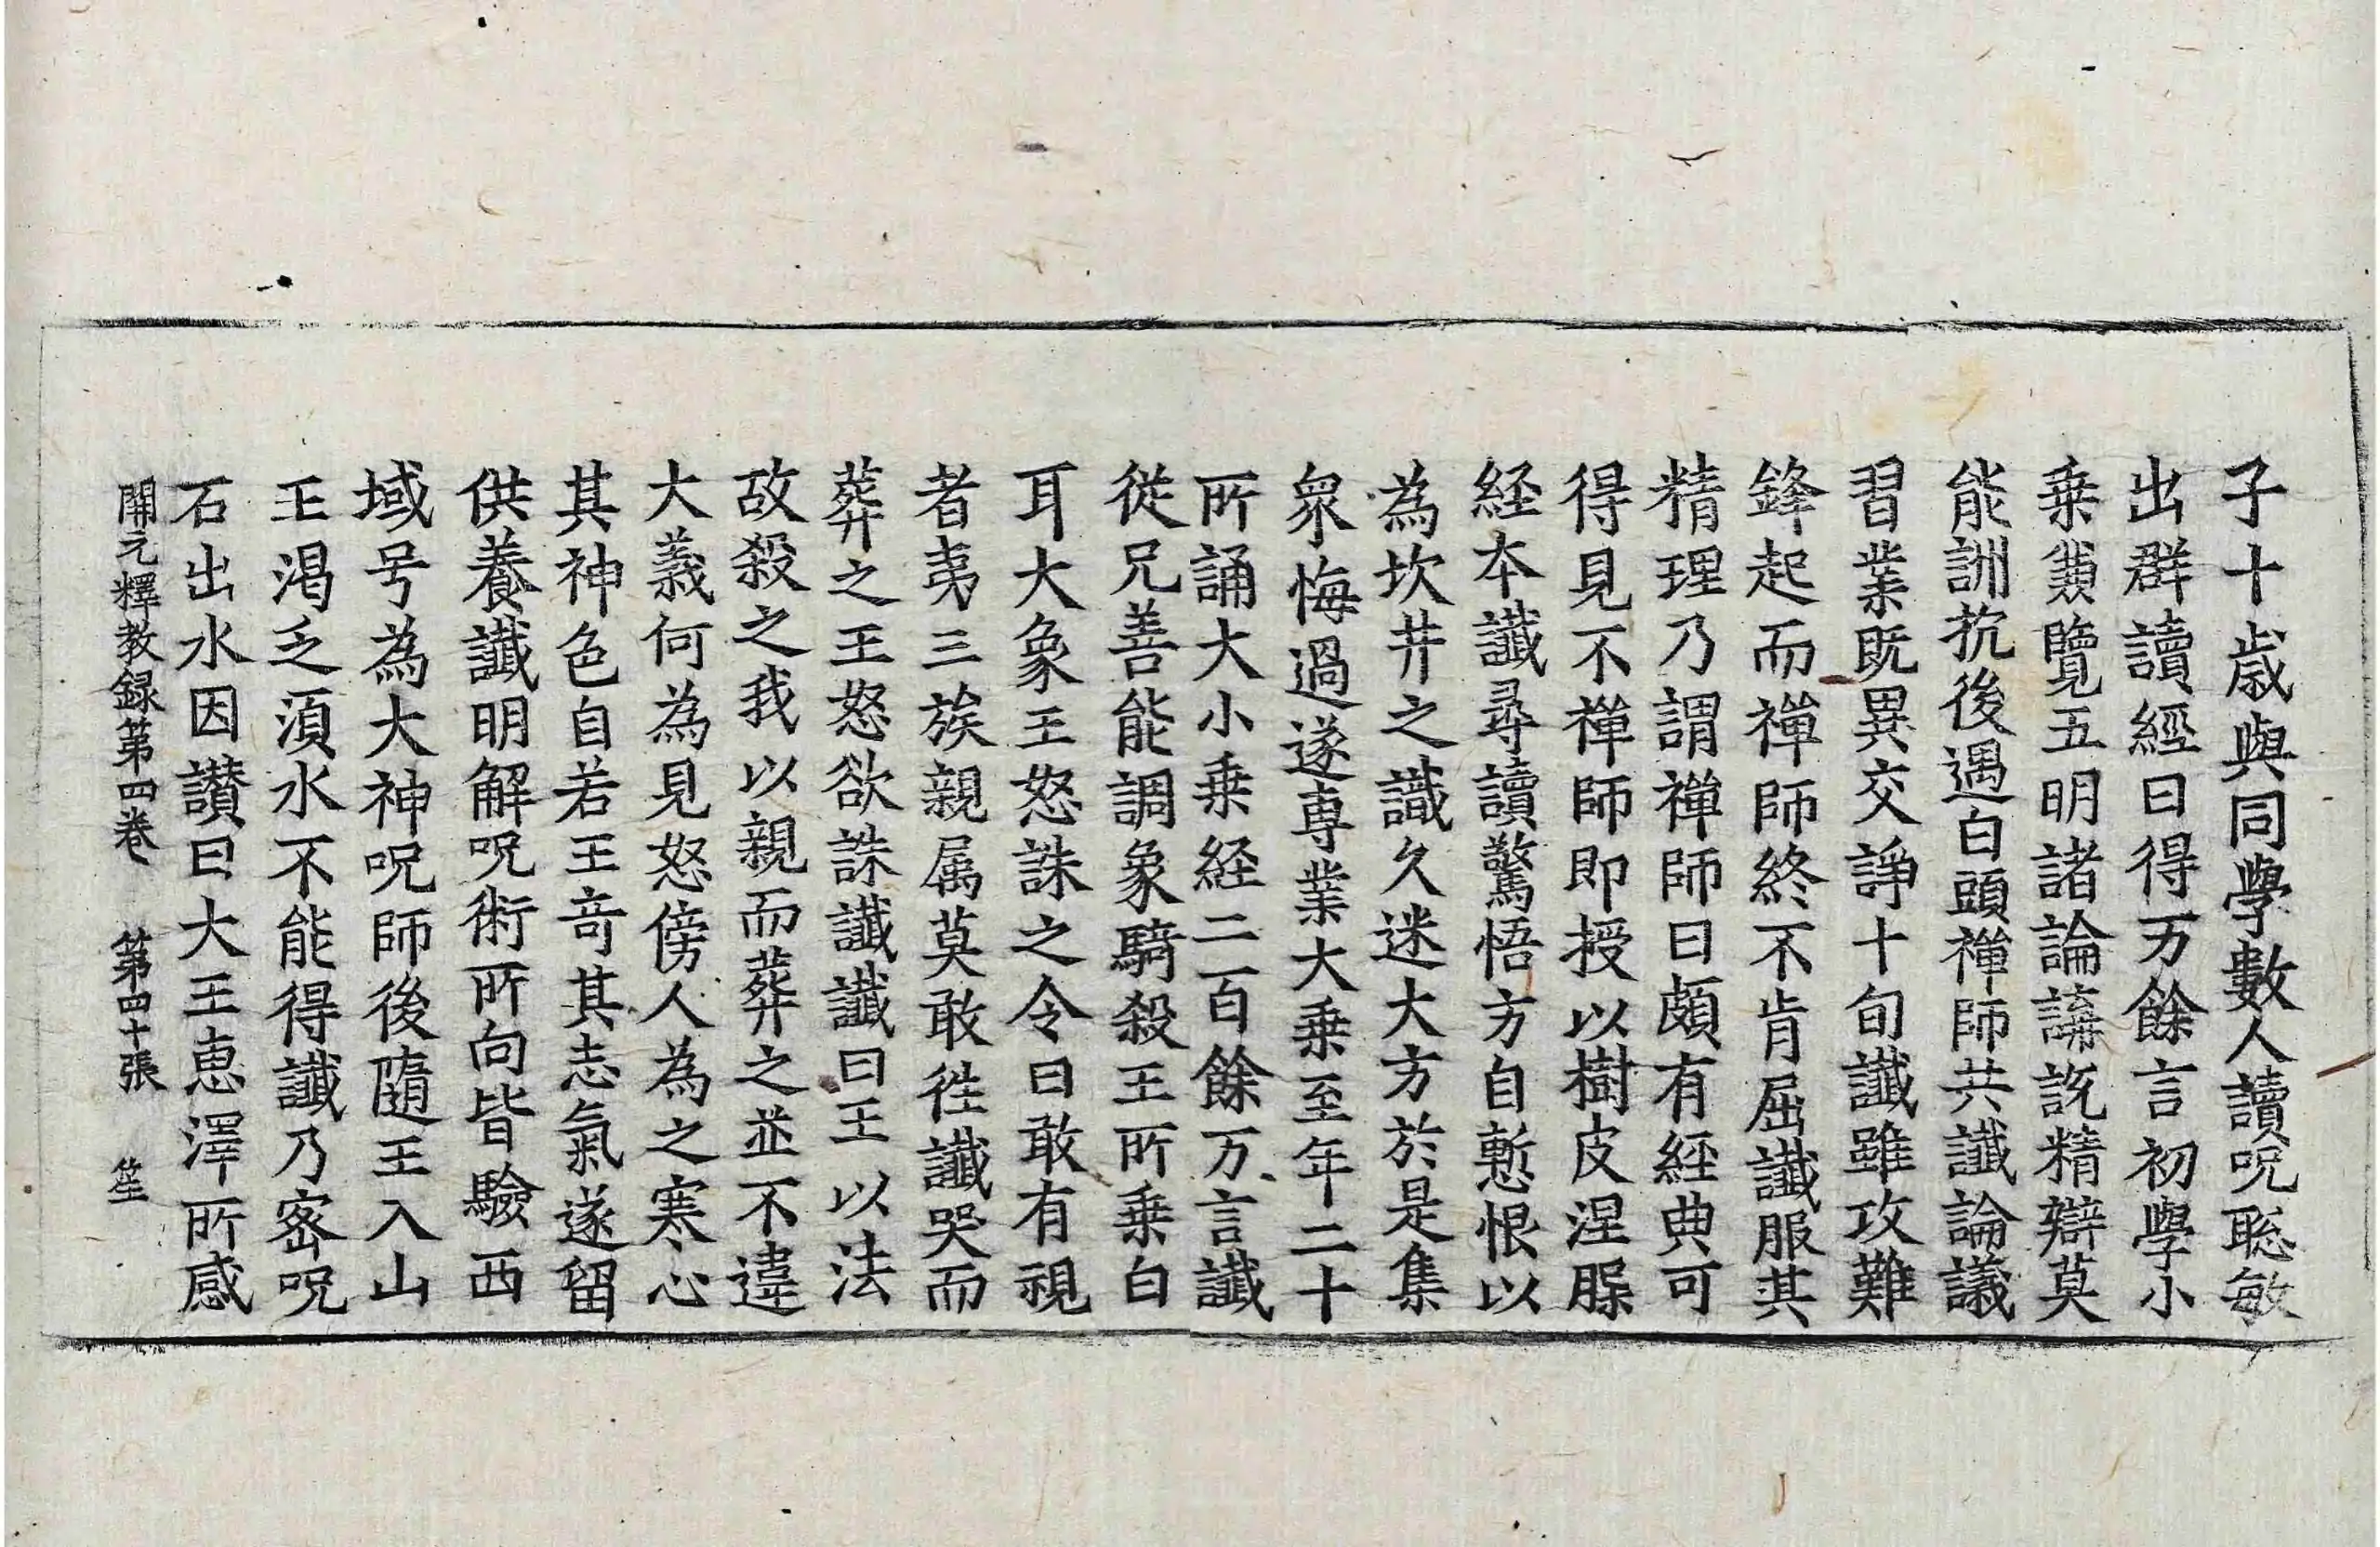 子十歲與同學數人讀呪聡敏
出群讀經日得万餘言初學小
乗兼覽五明諸論講說精辯莫
能訓抗後遇白頭禪師共讖論議
習業既異交諍十旬讖雖攻難
鋒起而禪師終不肯屈讖服其
精理乃謂禪師曰頗有經典可
得見不禪師即授以樹皮涅槃
経本讖尋讀驚悟方自慙恨以
為坎井之識久迷大方於是集
衆悔過遂専業大乗至年二十
所誦大小乗経二百餘万言讖
従兄善能調象騎殺王所乗白
耳大象王怒誅之令曰敢有視
者夷三族親属莫敢徃讖哭而
葬之王怒欲誅讖讖曰王以法
故殺之我以親而葬之並不違
大義何為見怒傍人為之寒心
其神色自若王竒其志氣遂留
供養讖明解呪術所向皆驗西
域号為大神呪師後隨王入山
王渇乏湏水不能得讖乃宻呪
石出水因讃曰大王恵澤所感
開元釋教録第四卷 第四十張 笙